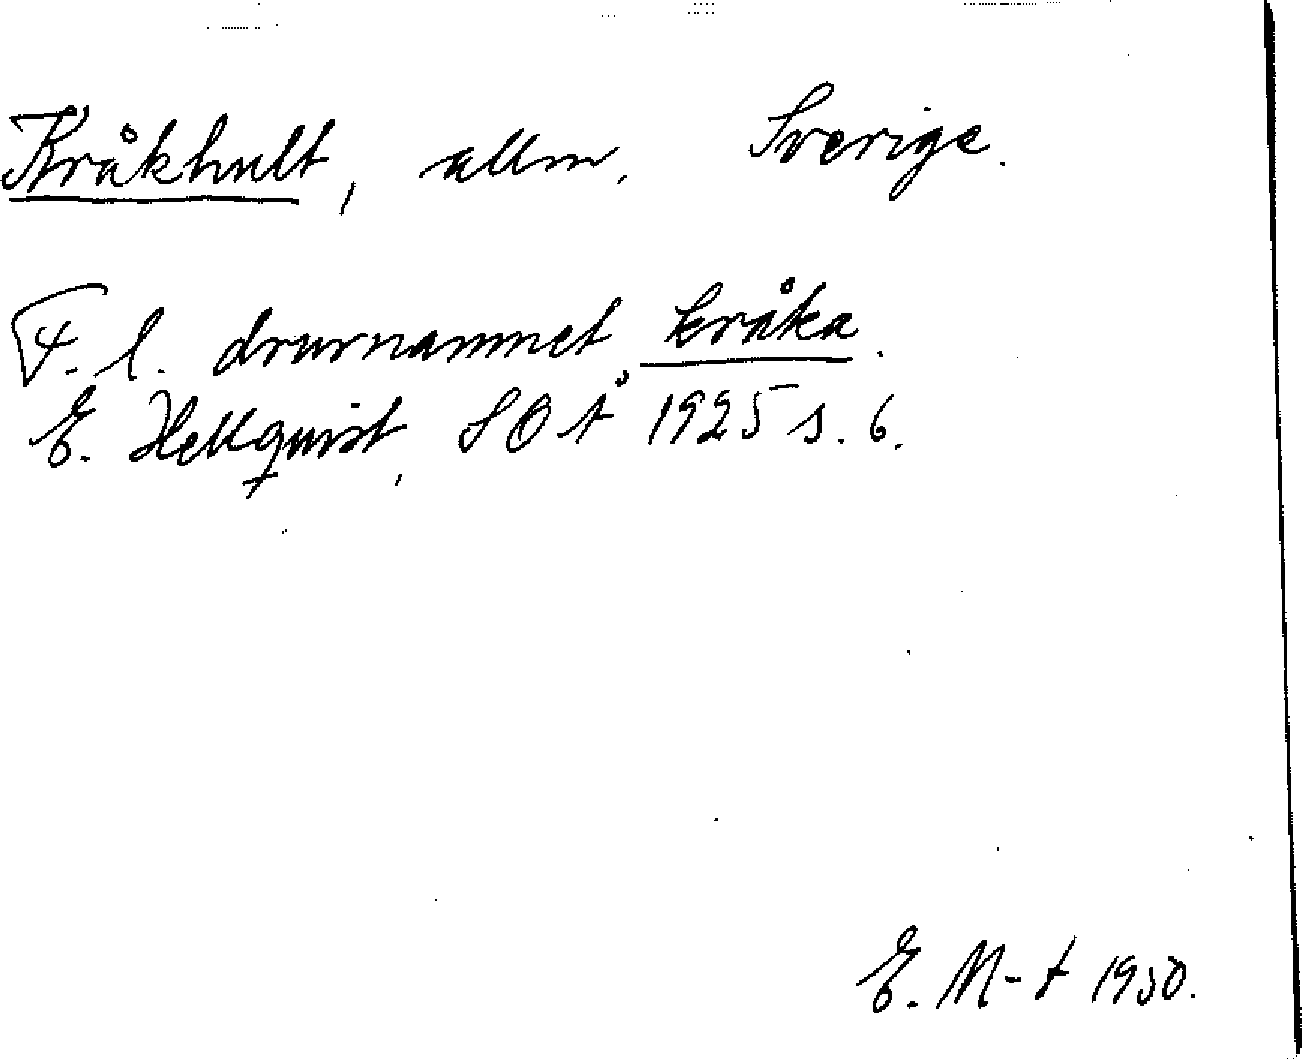 Kråkhult, allm. Sverige.
F. l. djurnamnet kråka.
E. Hellquist, SOÅ 1925 s. 6.
E. M-t 1950.